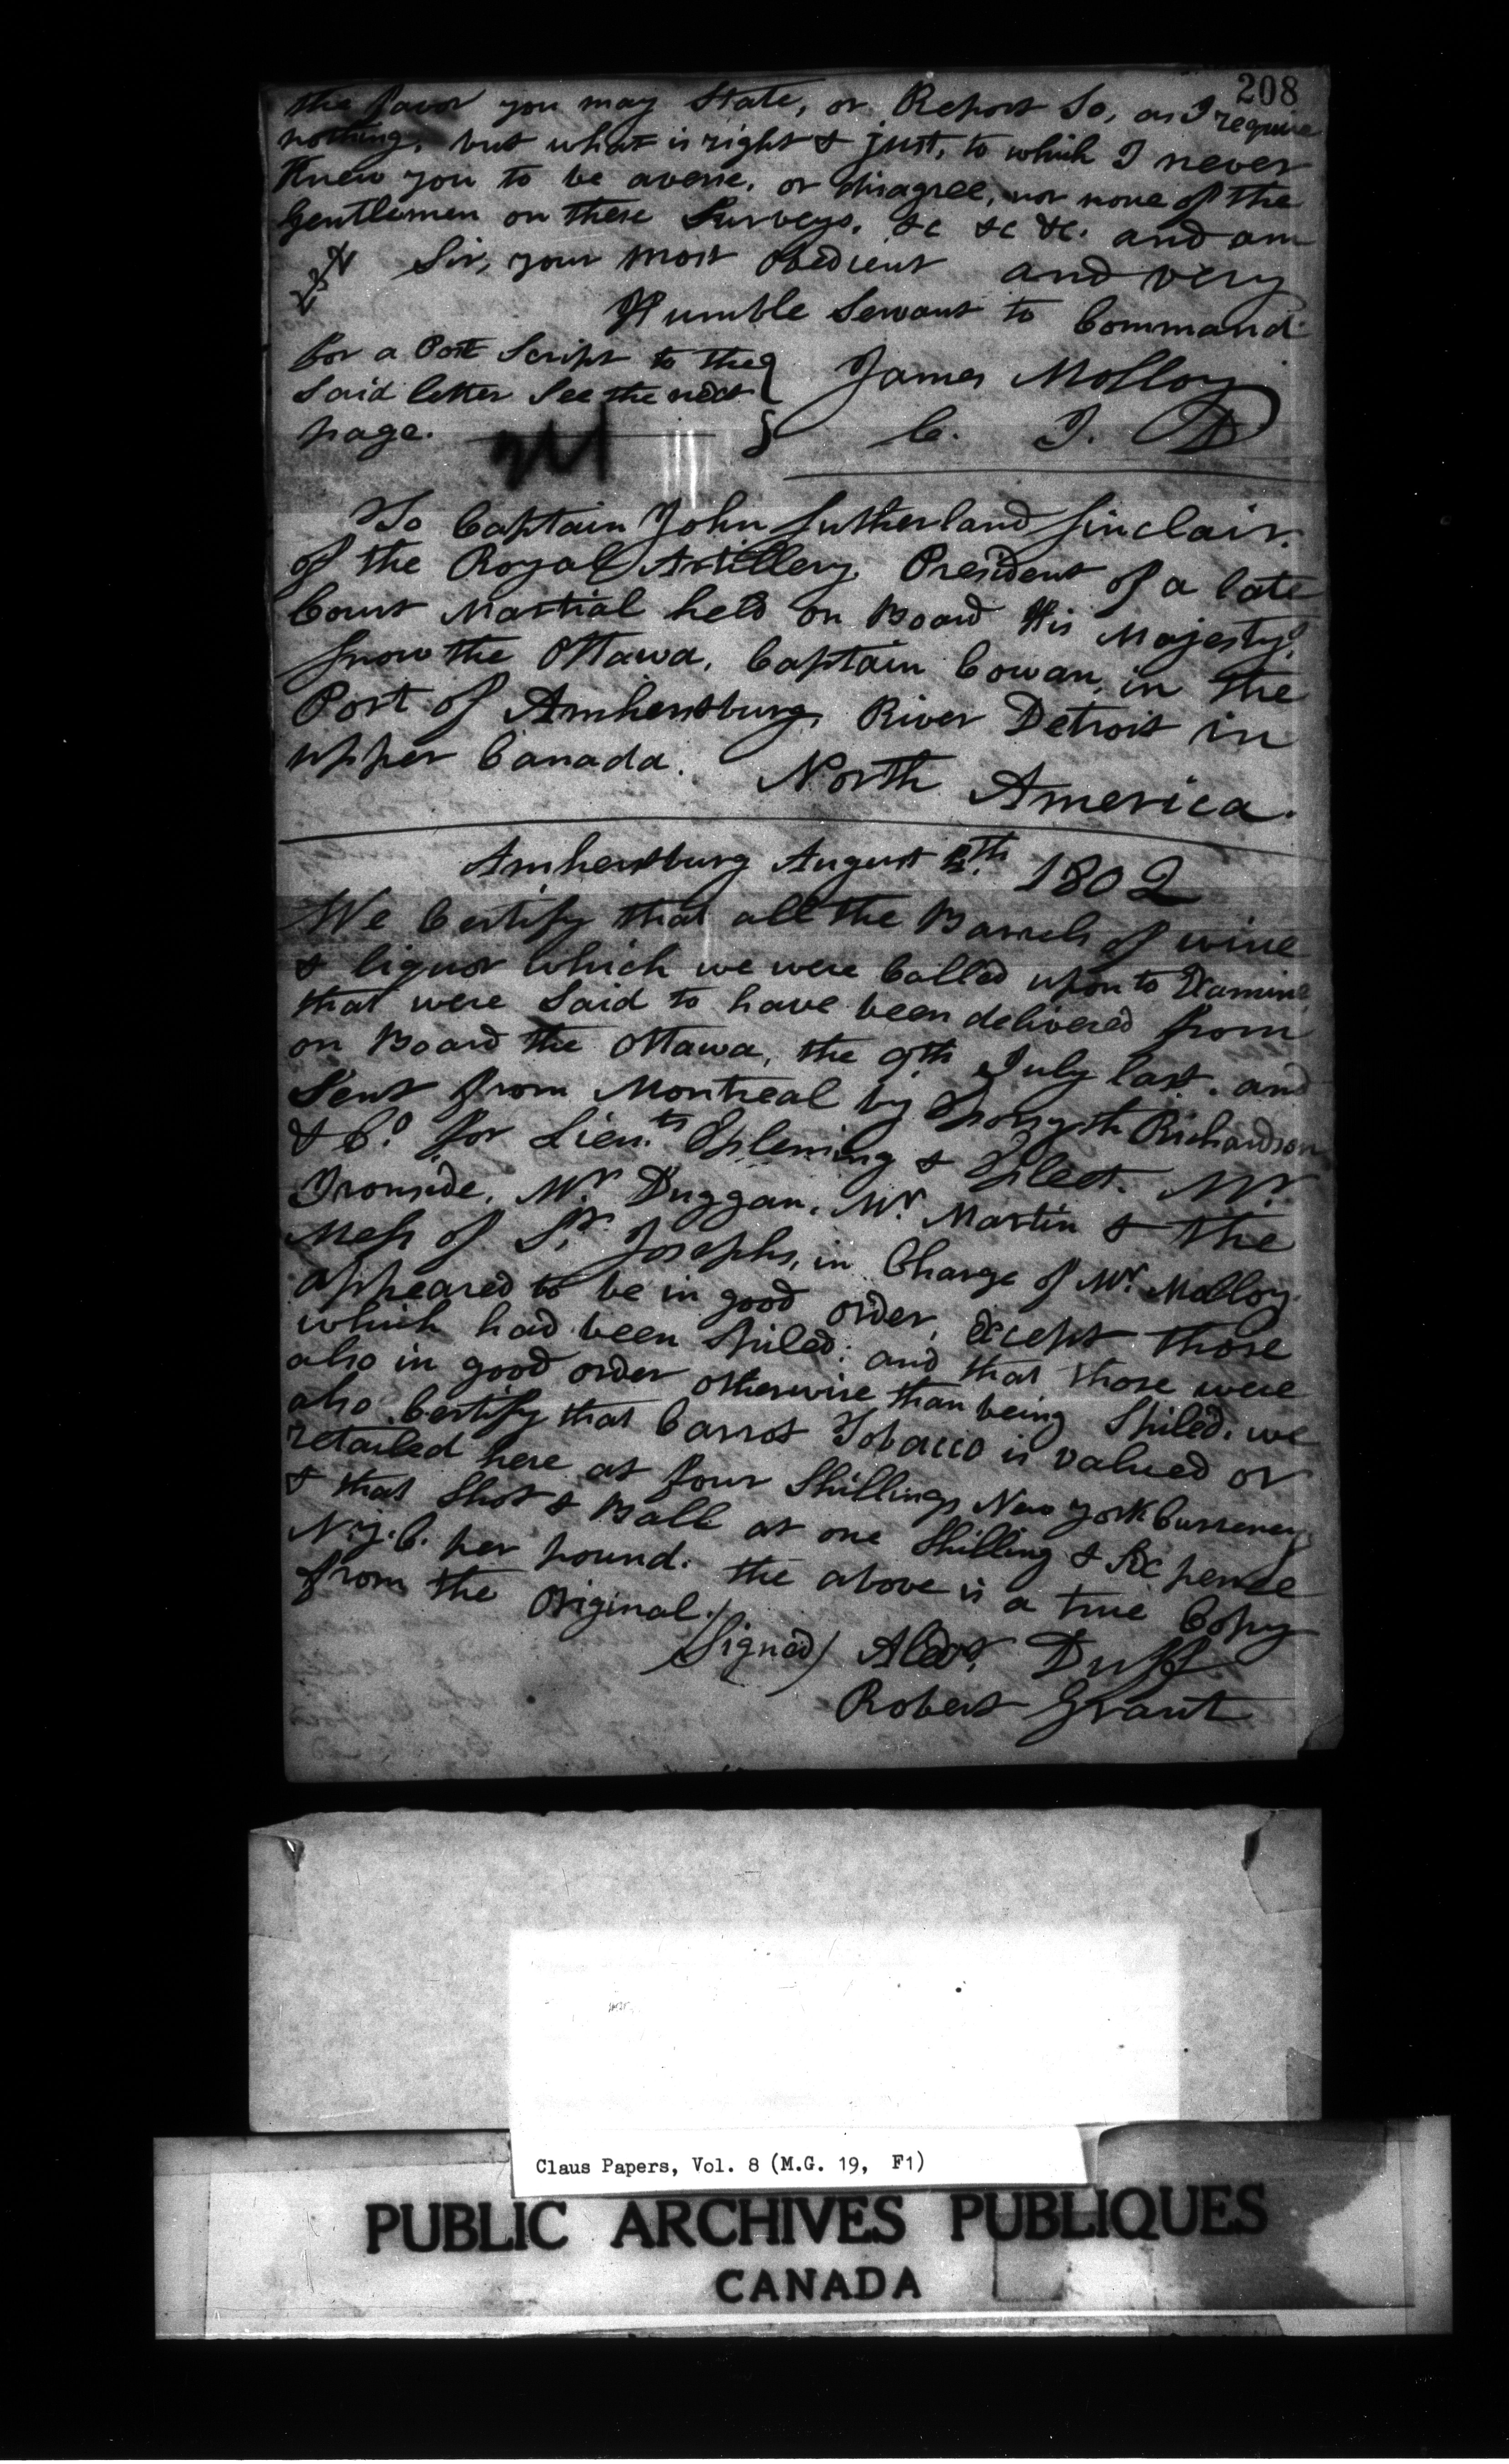 208
the favor you may State, or Report So, as I require
nothing, but what is right & just, to which I never
Knew you to be averse, or disagree, nor none of the
Gentlemen on these Surveys, &c &c &c. and am
Sir, your most obedient and very
Humble Servant to Command
for a Post Script to the
Said letter See the next
page.
James Molloy
C. I. D
To Captain John Sutherland Sinclair.
of the Royal Artillery, President of a late
Court Martial held on Board His Majesty's
Snow the Ottawa, Captain Cowan, in the
Port of Amherstburg, River Detroit in
upper Canada. North America.
Amherstburg August 1802
We Certify that all the Barrels of wine
& liquor which we were Called upon to Examine
that were Said to have been delivered from
on Board the Ottawa, the 9th July last. and
Sent from Montreal by Forsyth Richardson
& Co. for Lieuts. Fleming & Mr.
Ironside, Mr. Duggan, Mr. Martin & the
Mess of St. Josephs, in Charge of Mr. Molloy
appeared to be in good order, except those
which had been Spiled: and that those were
also in good order otherwise than being Spiled. we
also Certify that Carrot Tobacco is valued or
retailed here at four Shillings New york Currency
& that Shot & Ball at one Shilling & Six pence
N.y.C. per pound. the above is a true Copy
from the Original.
(Signed) Alexr. Duff
Robert Grant
Claus Papers, Vol. 8 (M.G. 19, F1)
PUBLIC ARCHIVES PUBLIQUES
CANADA